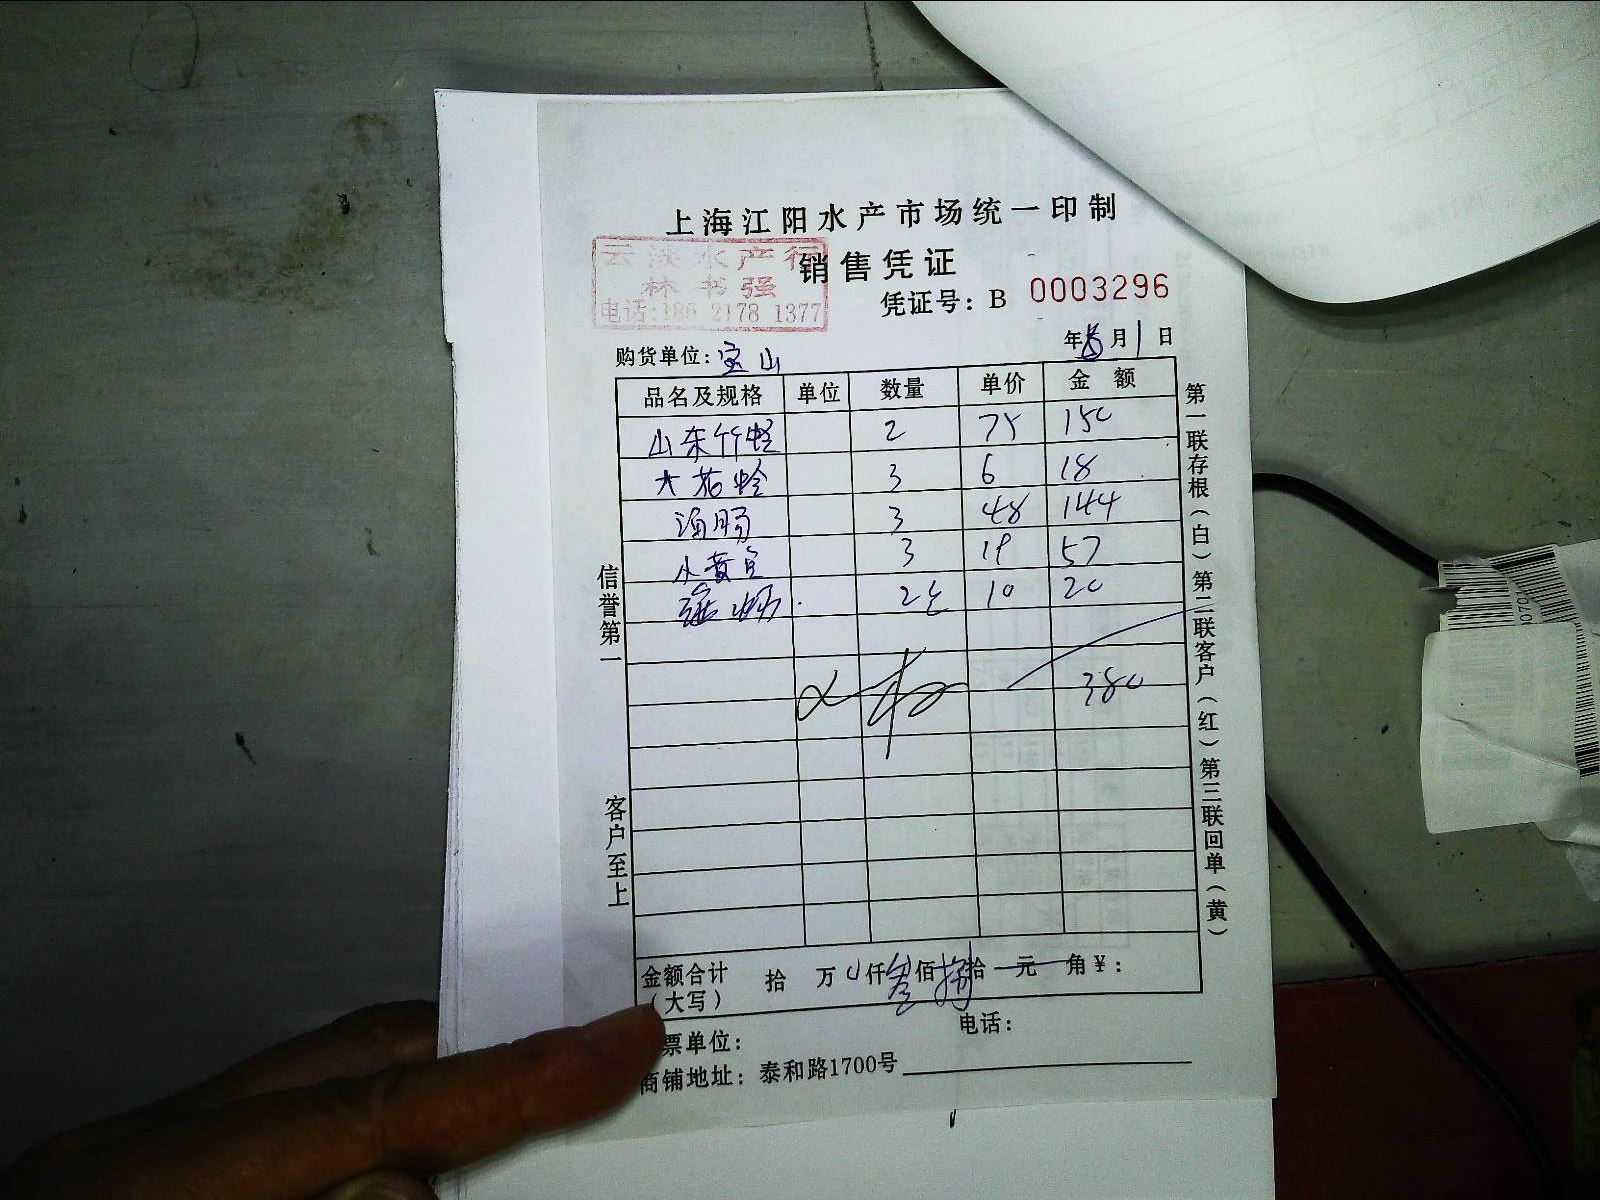 上海江阳水产市场统一印制
销售凭证
水产行
林书强
电话: 2178 1377
凭证号: B 0003296
购货单位: 宝山
年 月 1 日
品名及规格 单位 数量 单价 金额
山东竹蛏 2 75 150
大花蛤 3 6 18
海肠 3 48 144
小黄鱼 3 19 57
2 10 20
380
金额合计 拾 万 仟 叁 佰 捌 拾 元 角 ¥:
(大写)
票单位:
电话:
商铺地址: 泰和路1700号
信誉第一
客户至上
第一联存根(白)第二联客户(红)第三联回单(黄)